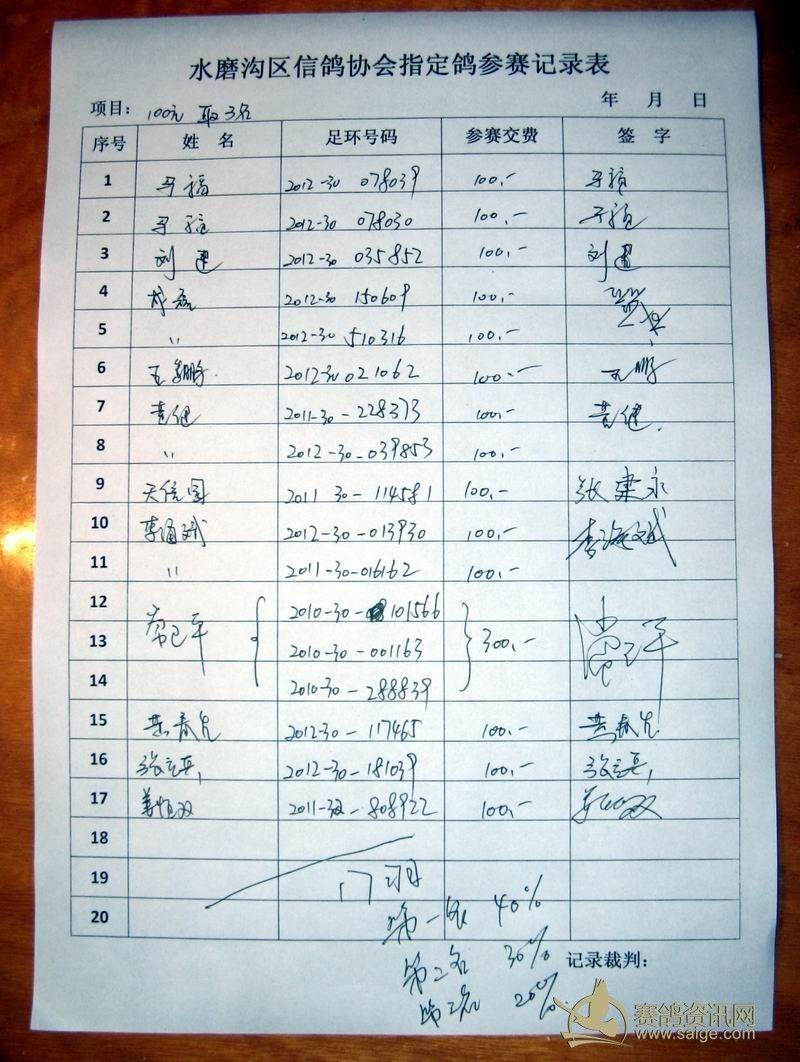 水磨沟区信鸽协会指定鸽参赛记录表
项目: 100元 取3名 年 月 日
序号 姓 名 足环号码 参赛交费 签 字
1 马福 2012-30 078039 100,-
2 2012-30 078030 100,-
3 刘建 2012-30 035852 100,- 刘建
4 2012-30 150609 100,-
5 〃 2012-30 510316 100,-
6 2012-30 021062 100,-
7 黄健 2011-30-228373 100,- 黄健
8 〃 2012-30-039853 100,-
9 天信园 2011 30-114581 100,- 张建永
10 李海斌 2012-30-013930 100,- 李海斌
11 〃 2011-30-016162 100,-
12 2010-30-101566
13 常卫平 2010-30-001163 300,- 常卫平
14 2010-30-288839
15 2012-30-117465 100,-
16 2012-30-181039 100,-
17 2011-30-808922 100,-
18
19 17羽
20 第一名 40%
第二名 30%
记录裁判:
20%
赛鸽资讯网
www.saige.com